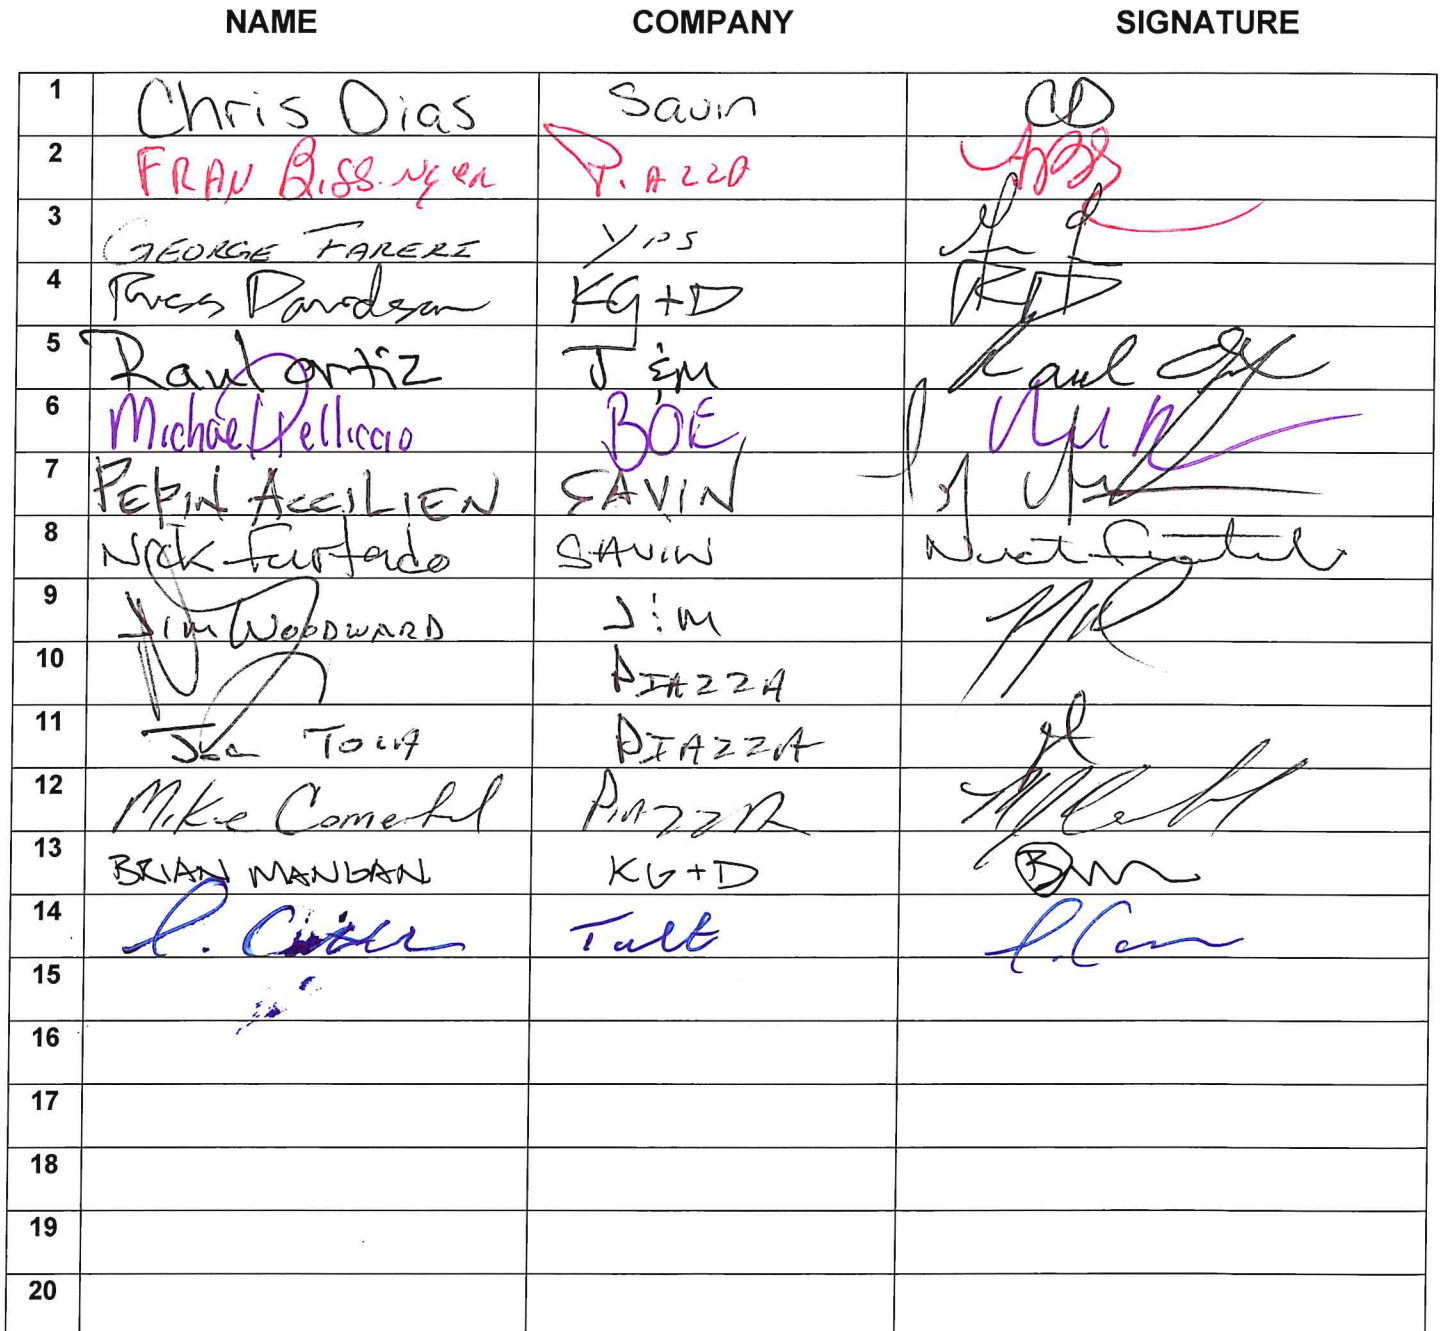 NAME COMPANY SIGNATURE
1 Chris Dias Savin CD
2 FRAN Bissinger PIAZZA
3 GEORGE FARERI YPS
4 Russ Davidson KG+D RD
5 Raul ortiz J&M Raul
6 Michael Pelliccio BOE
7 PEPIN ACCILIEN SAVIN
8 Nick Furtado SAVIN
9 Jim WOODWARD J&M
10 PIAZZA
11 Joe PIAZZA
12 Mike PIAZZA
13 BRIAN MANGAN KG+D
14
15
16
17
18
19
20